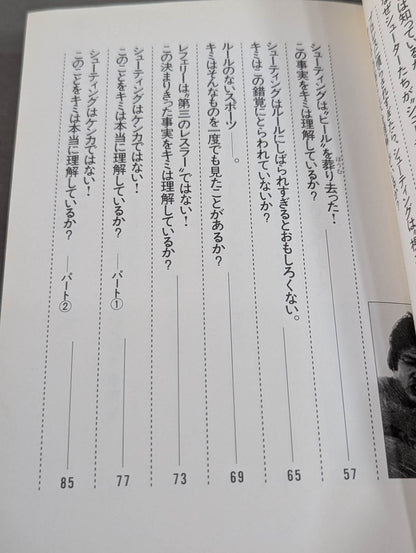 は知って
シューターたちが
シューティングは〝ヒール〟を葬り去った!
ほうむ
この事実をキミは理解しているか?
57
シューティングはルールにしばられすぎるとおもしろくない。
キミはこの錯覚にとらわれていないか?
65
ルールのないスポーツ——。
キミはそんなものを一度でも見たことがあるか?
69
レフェリーは〝第三のレスラー〟ではない!
この決まりきった事実をキミは理解しているか?
73
シューティングはケンカではない!
このことをキミは本当に理解しているか? ——パート①
77
シューティングはケンカではない!
このことをキミは本当に理解しているか? ——パート②
85